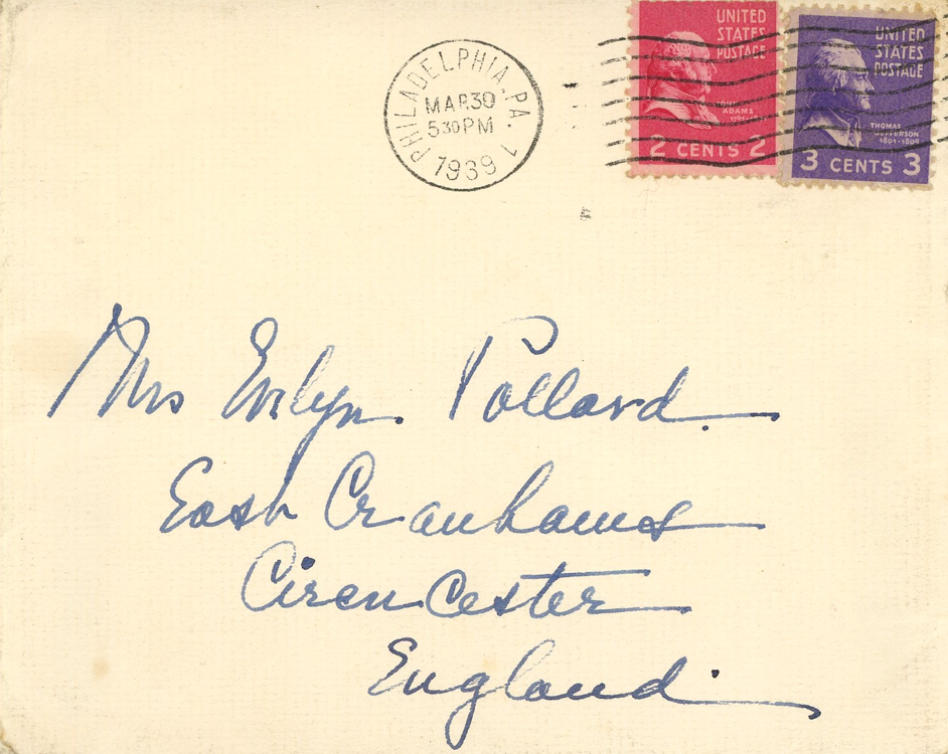 PHILADELPHIA, PA. 1
MAR 30
5 30 PM
1939
UNITED
STATES
POSTAGE
JOHN
ADAMS
2 CENTS 2
UNITED
STATES
POSTAGE
THOMAS
JEFFERSON
1801-1809
3 CENTS 3
Mrs Evelyn Pollard.
East Cranhams
Cirencester
England.